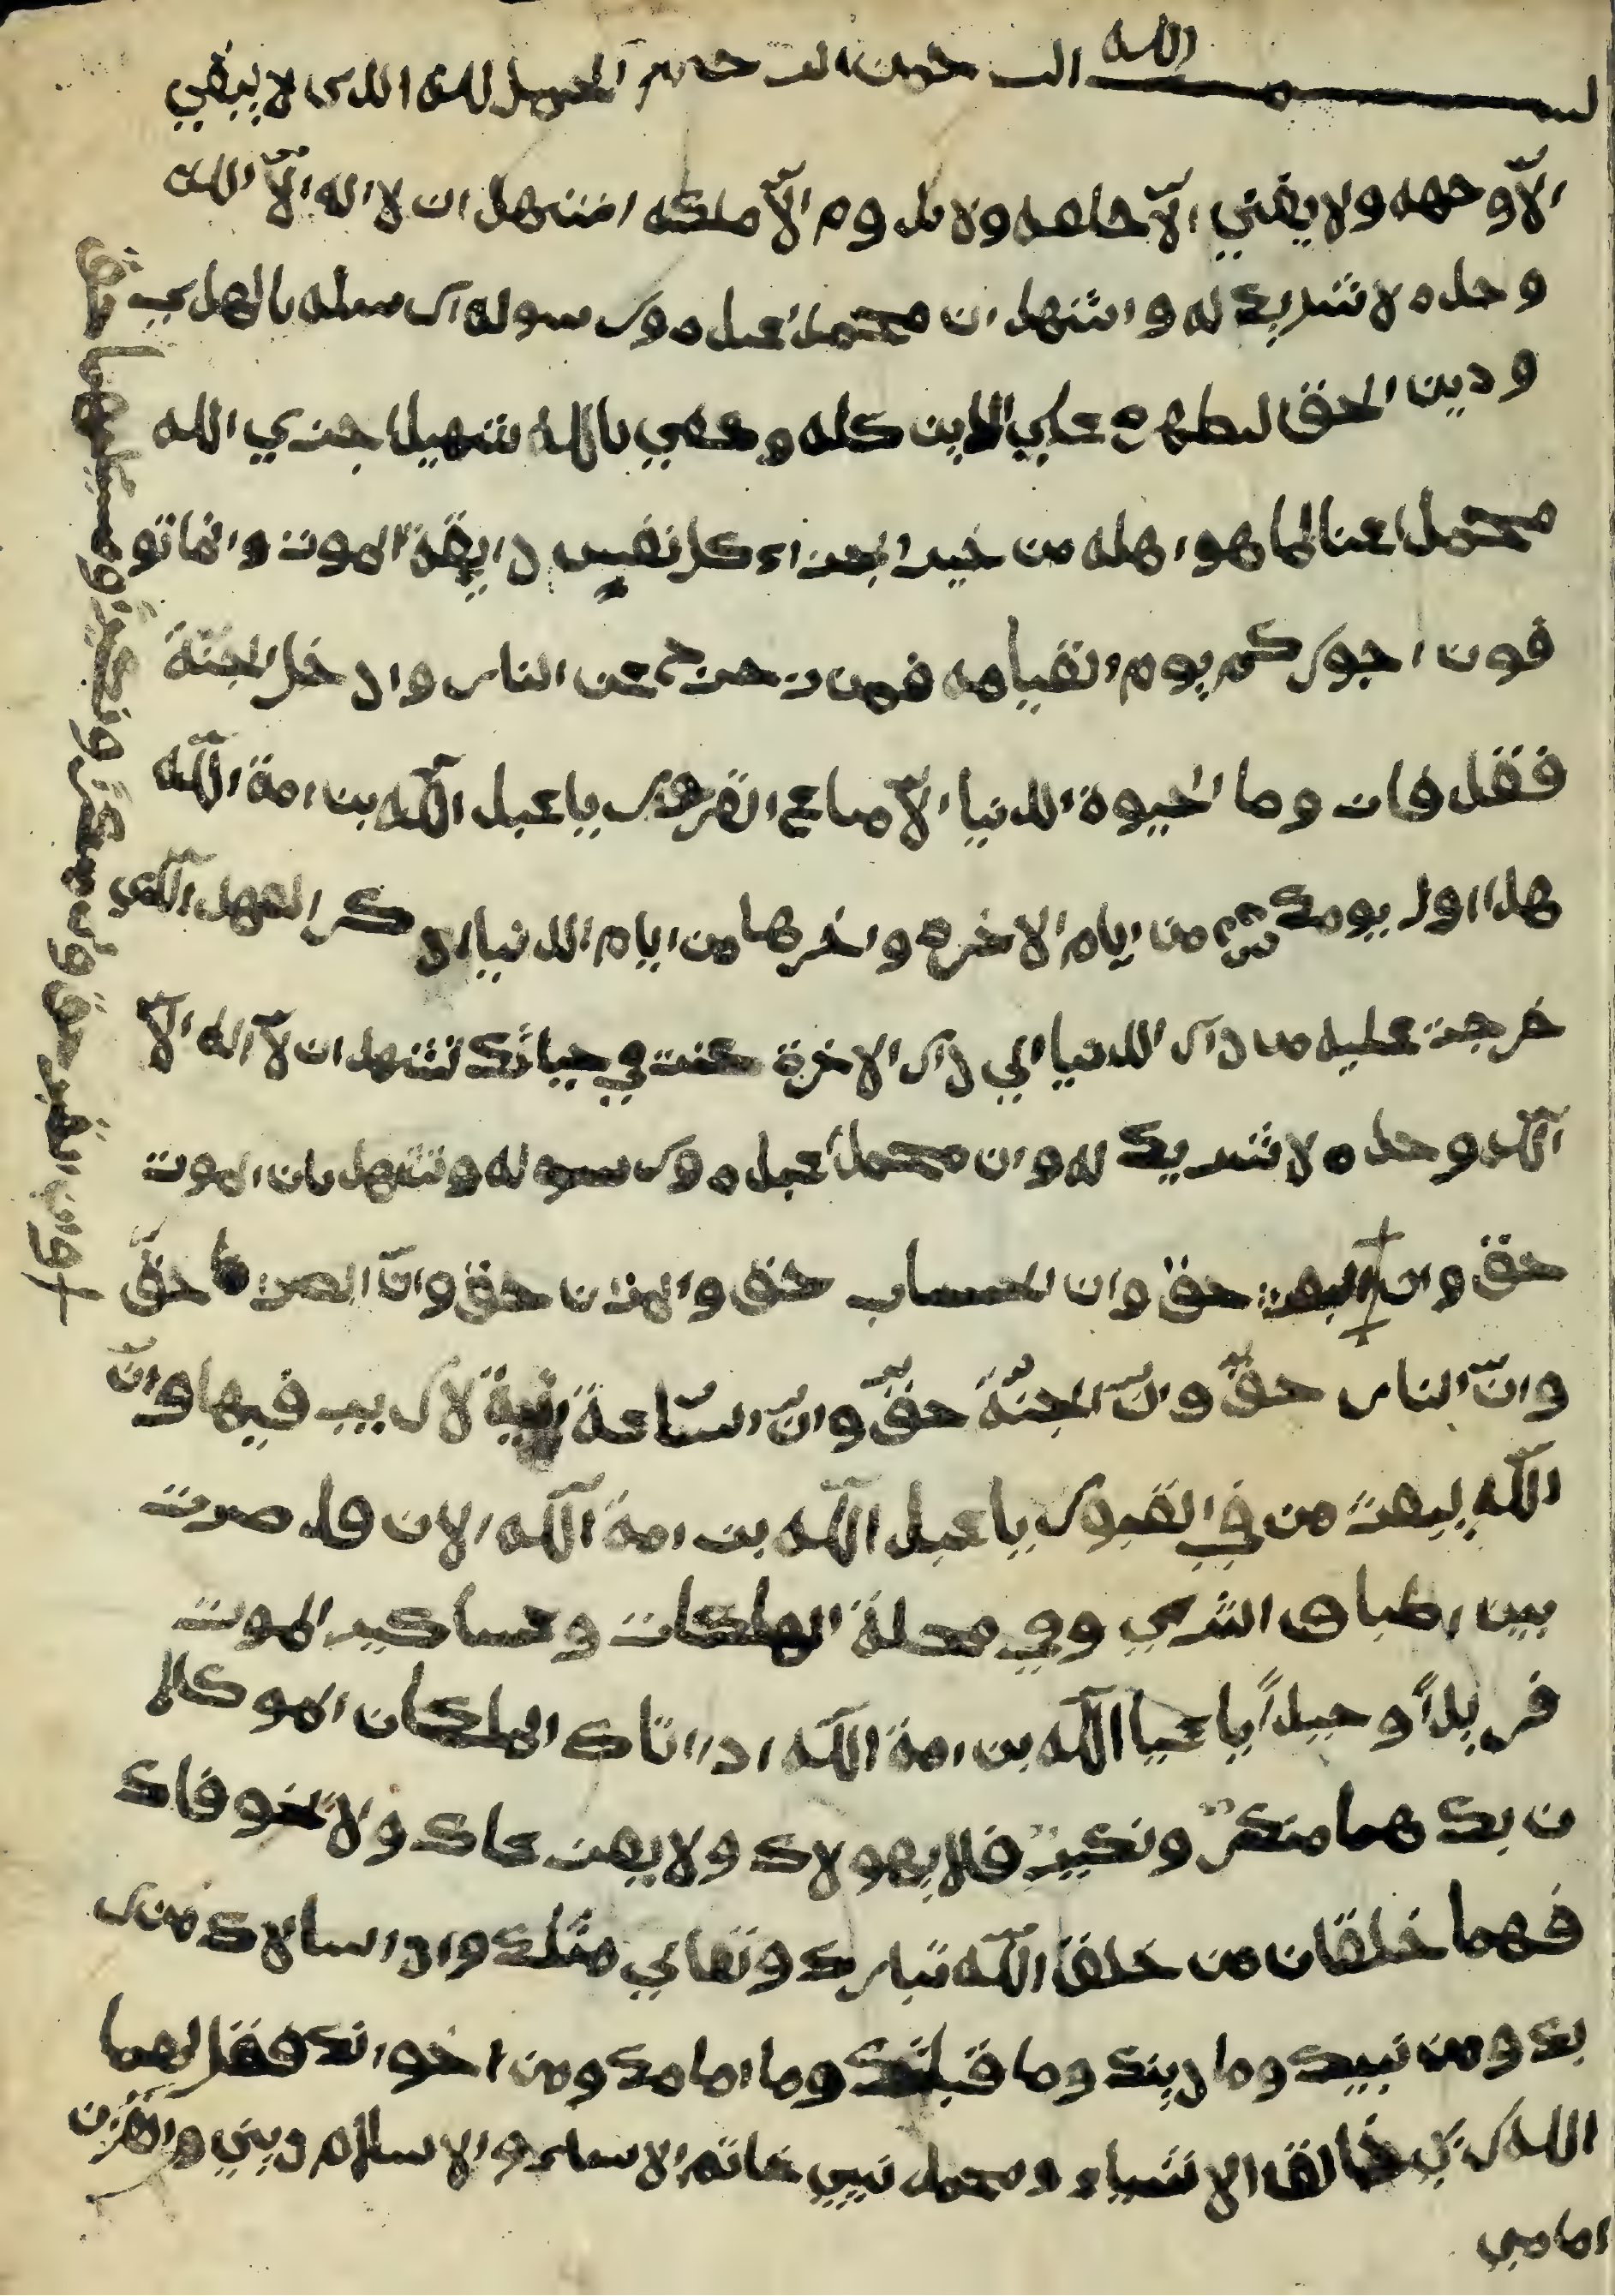 بسم الله الرحمن الرحيم الحمد لله الدى لا يبقي
الاّ وجهه ولا يفني الاّ خلقه ولا يدوم الاّ ملكه اشهد ان لا اله الاّ الله
وحده لا شريك له واشهد ان محمداً عبده ورسوله ارسله بالهدي
ودين الحق ليطهره علي الدين كله وكفي بالله شهيدا جزي الله
محمدا عنا لما هو اهله من خير الجزاء كل نفس دايقة الموت وانما تو
فون اجوركم يوم القيامه فمن زحزح عن النار وادخل الجنّة
فقد فاز وما الحيوة الدنيا الاّ متاع الغرور يا عبد اللّه بن امة اللّه
هدا اول يومك من ايام الاخره واخرها من ايام الدنيا ادكر العهد الّدي
خرجت عليه من دار الدنيا الي دار الاخرة كنت في حياتك تشهد ان لآ اله الاّ
اللّه وحده لا شريك له وان محمداً عبده ورسوله وتشهد بان الموت
حق وان البعث حق وان الحساب حق والمزان حق وانّ الصراط حقّ
وانّ النار حقّ وانّ الجنّة حقّ وانّ السّاعة اتية لا ريب فيها وانّ
اللّه يبعث من في القبور يا عبد اللّه بن امة اللّه الان قد صرت
بين اطباق الثري وفي محلة الهلكات وعساكر الموت
فريداً وحيداً يا عبد اللّه بن امة اللّه ادا اتاك الملكان الموكلا
ن بك هما منكرٌ ونكيرٌ فلا يهولاك ولا يفزعاك ولا يخوفاك
فهما خلقان من خلق اللّه تبارك وتعالي مثلك وادا سالاك من ر
بك ومن نبيك وما دينك وما قبلتك وما امامك ومن اخوانك فقل لهما
الله ربي خالق الاشياء ومحمد نبيي خاتم الانبياء والاسلام ديني والقران
امامي
+ وان القبر حق وان منكر ونكير ومسيلتهما حق